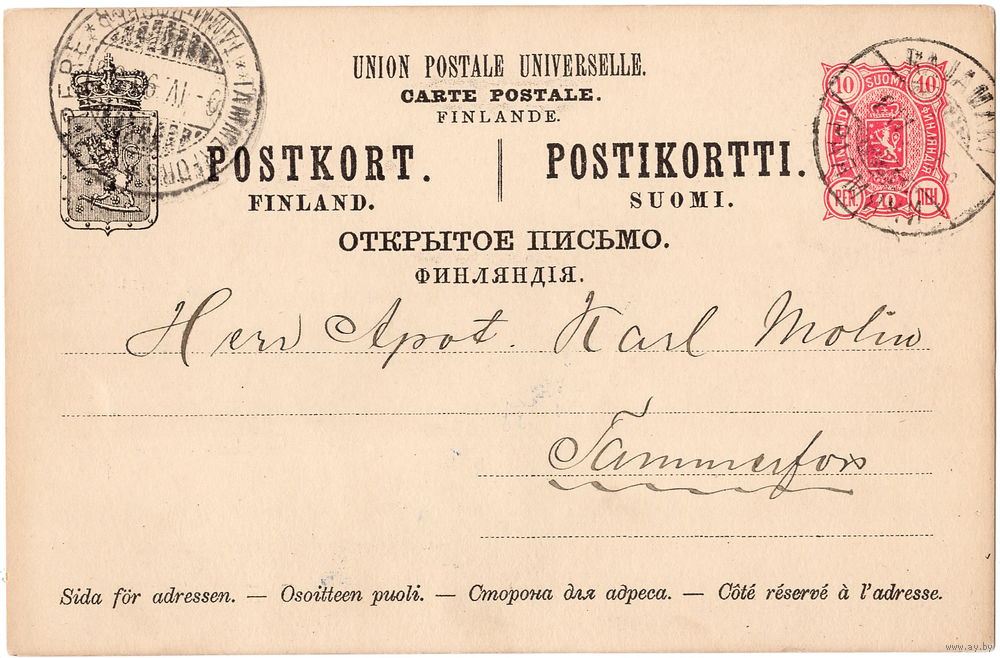 UNION POSTALE UNIVERSELLE.
CARTE POSTALE.
FINLANDE.
POSTKORT. POSTIKORTTI.
FINLAND. SUOMI.
ОТКРЫТОЕ ПИСЬМО.
ФИНЛЯНДІЯ.
10 SUOMI 10
FINLAND ФИНЛЯНДІЯ
PEN. 10 ПЕН.
Herr Apot. Karl Molin
Tammerfors
Sida för adressen. — Osoitteen puoli. — Сторона для адреса. — Côté réservé à l'adresse.
www.ay.by